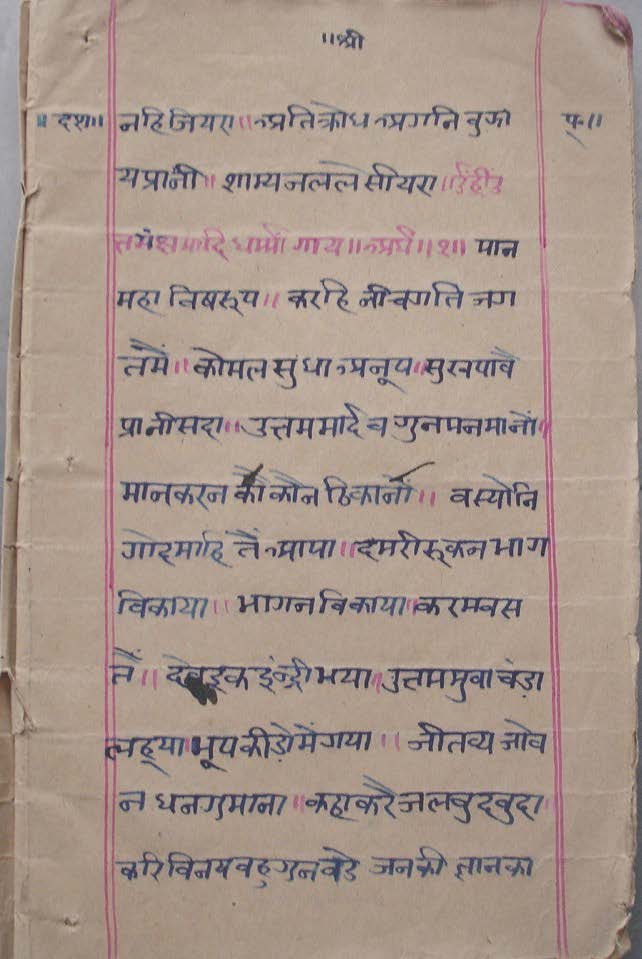 ॥श्री
॥ दश॥ नहि जियरा॥ अति क्रोध अगनि वुझा पू॥
य प्रानी॥ शाम्य जल ले सीयरा॥ उँह्रीँउ
त्तमक्षमादि धर्मांगाय॥ अर्घं॥१॥ मान
महा विषरूप॥ करहि नीचगति जग
तमैं॥ कोमल सुधा अनूप॥ सुख पावै
प्रानी सदा॥ उत्तम मार्दव गुन मन मानौं॥
मान करन कौ कौन ठिकानौं॥ वस्यो नि
गोदमाहि तैं आया॥ दमरी रूकन भाग
विकाया॥ भागन विकाया करमवस
तैं॥ देव इक इंन्द्री भया॥ उत्तम मुवा चंडा
ल हूया॥ भूप कीड़ो में गया॥ जीतव्य जोव
न धन गुमाना॥ कहा करै जल वुदवुदा
करि विनय वहु गुन वडे जन की ज्ञान का